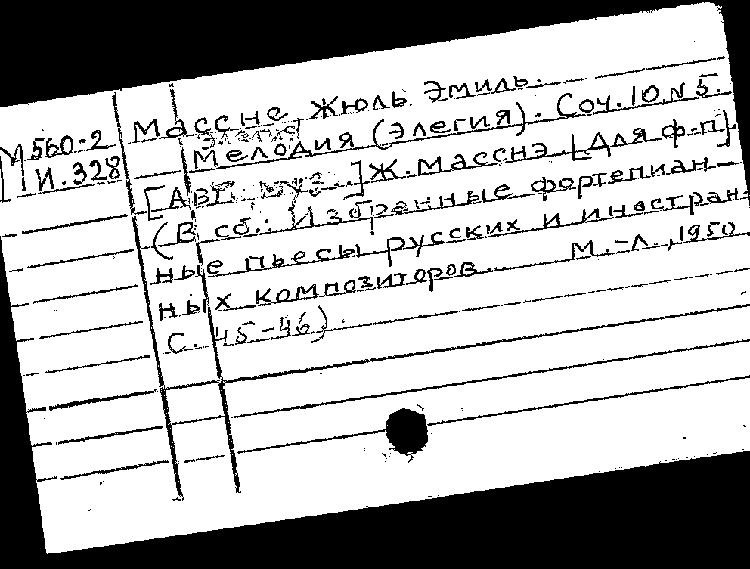 Массне, Жюль Эмиль.
М560-2 Мелодия (Элегия). Соч. 10, N 5.
И.328 [Авт. муз.] Ж. Масснэ [Для ф-п].
(В сб.: Избранные фортепиан-
ные пьесы русских и иностран-
ных композиторов... М.-Л., 1950.
С. 45-46).